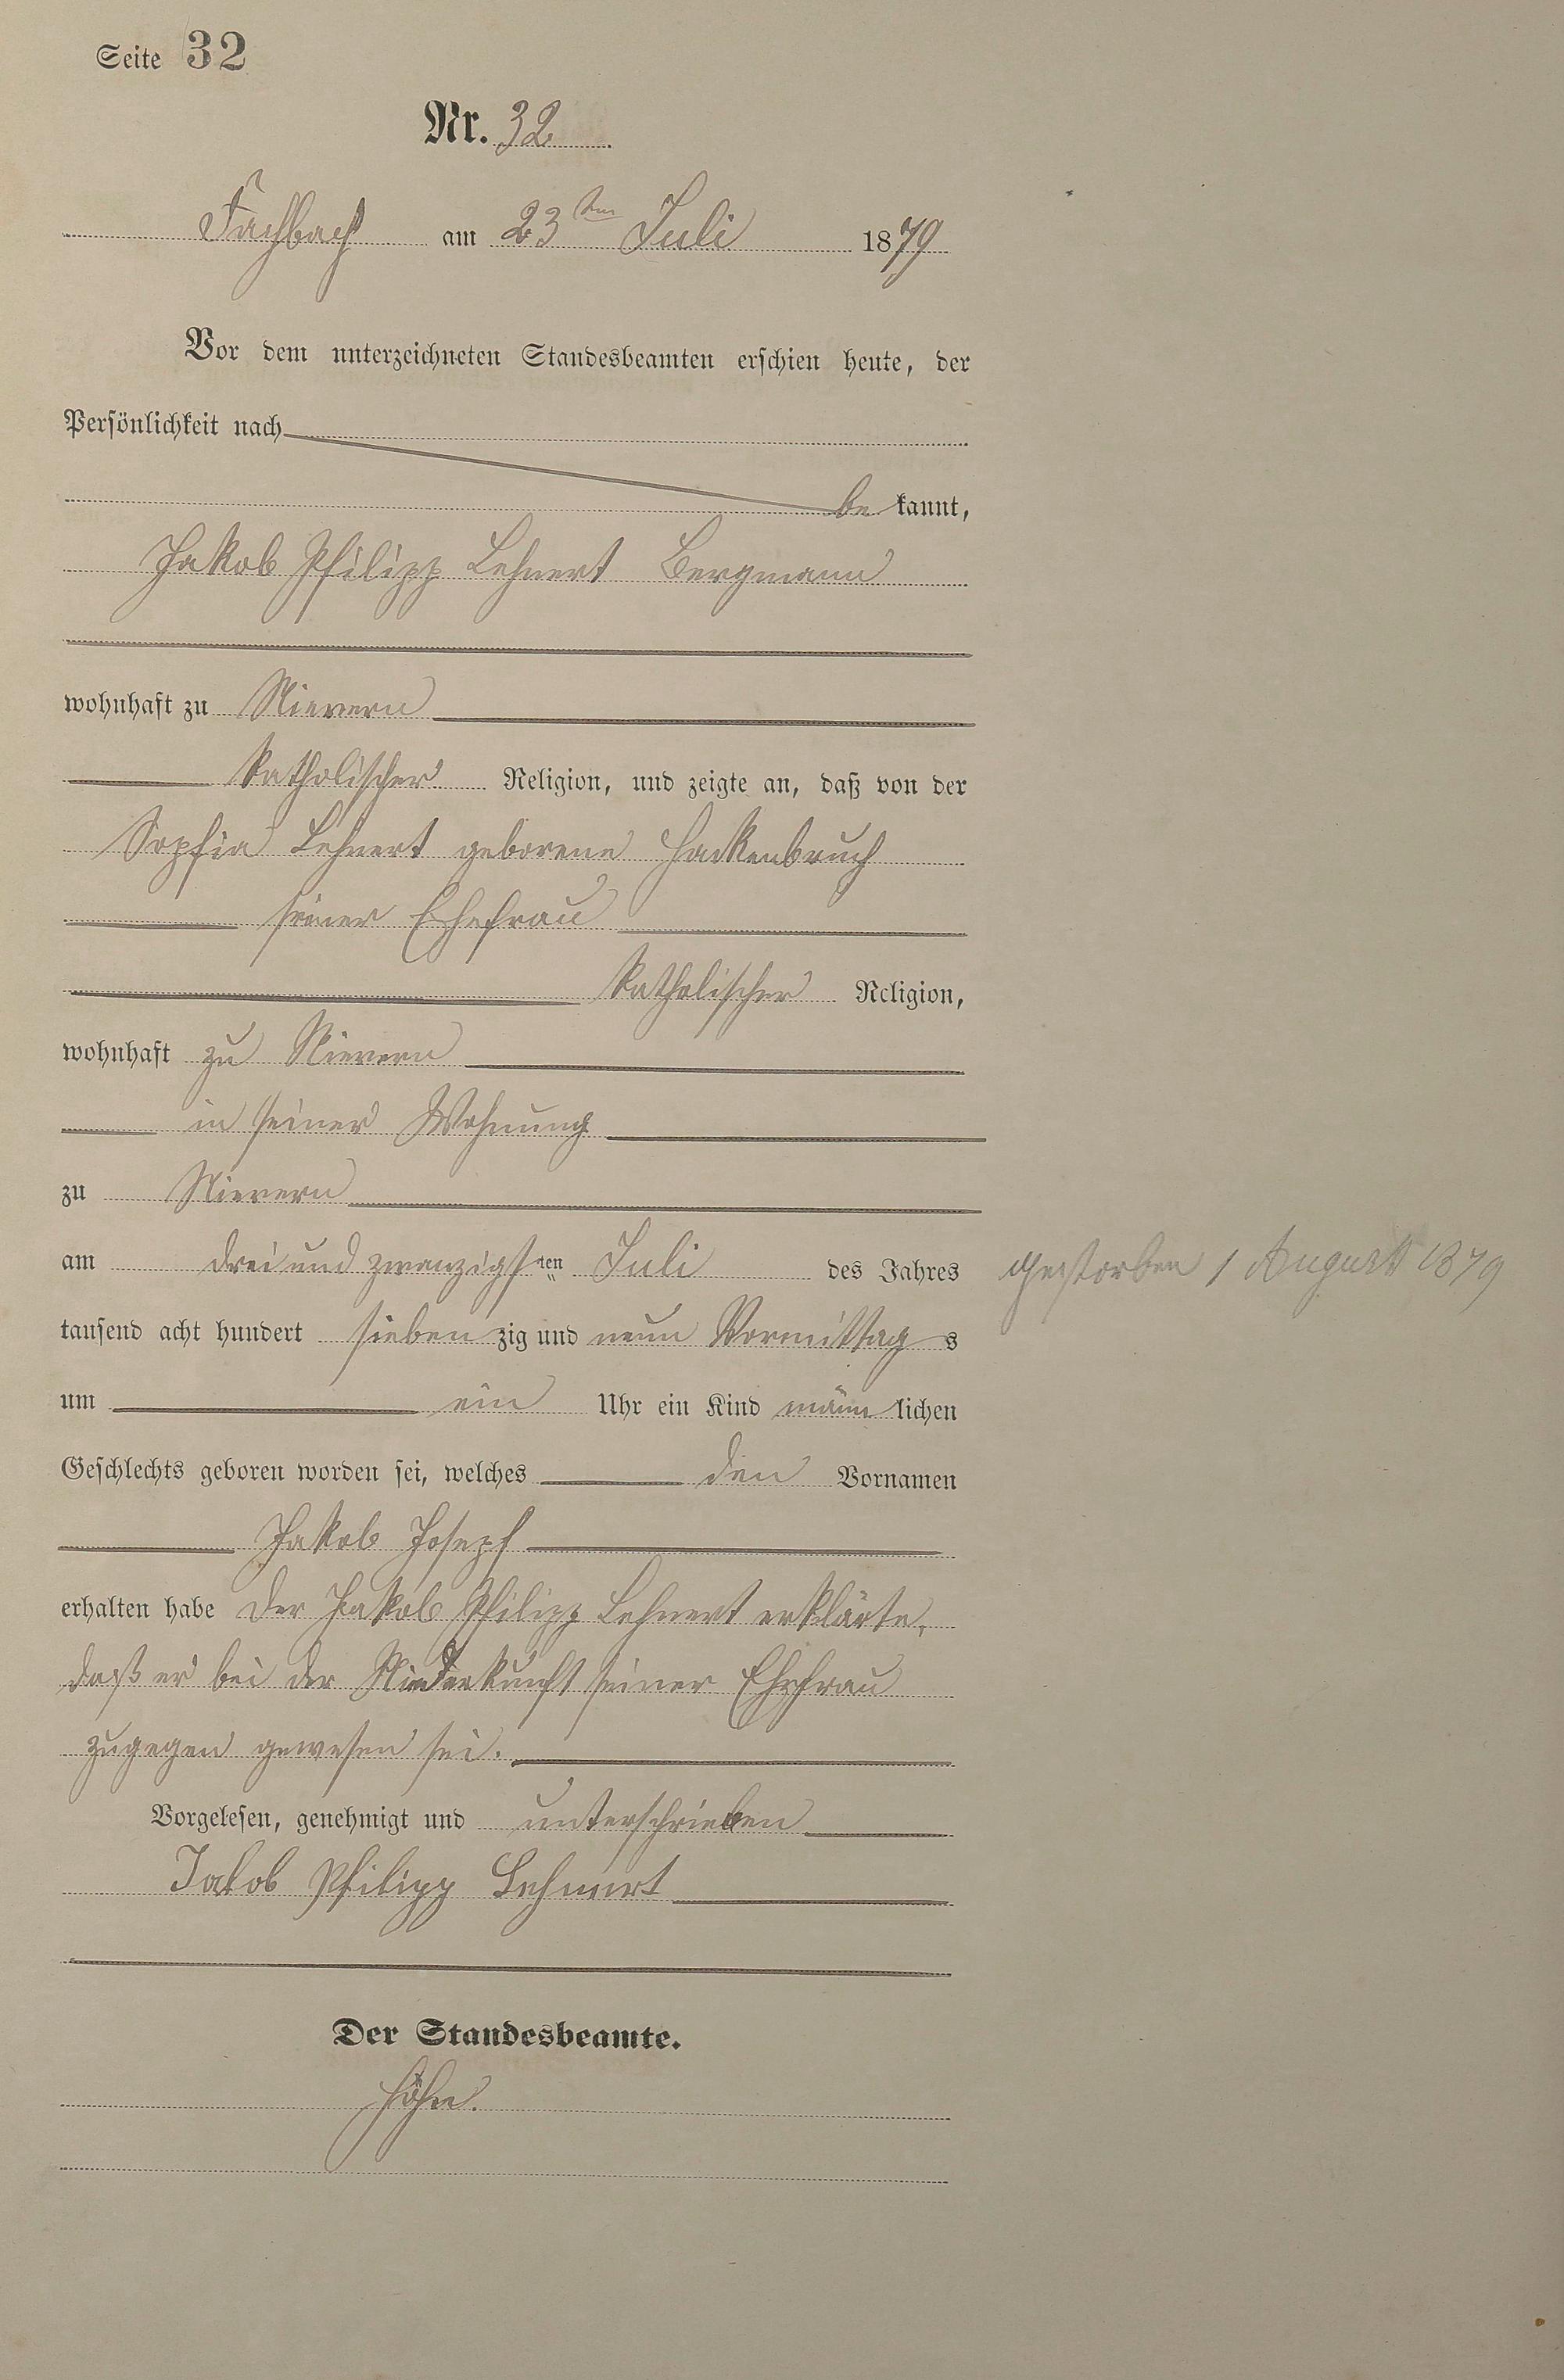 Seite 32
Nr. 32
Fachbach am 23ten Juli 1879
Vor dem unterzeichneten Standesbeamten erschien heute, der
Persönlichkeit nach
be kannt,
Jakob Philipp Lehnert Bergmann
wohnhaft zu Nievern
katholischer Religion, und zeigte an, daß von der
Sophia Lehnert geborene Hackenbruch
seiner Ehefrau
katholischer Religion,
wohnhaft zu Nievern
in seiner Wohnung
zu Nievern
am drei und zwanzigsten Juli des Jahres
gestorben 1 August 1879
tausend acht hundert sieben zig und neun Vormittag s
um ein Uhr ein Kind männ lichen
Geschlechts geboren worden sei, welches den Vornamen
Jakob Joseph
erhalten habe Der Jakob Philipp Lehnert erklärte,
daß er bei der Niederkunft seiner Ehefrau
zugegen gewesen sei.
Vorgelesen, genehmigt und unterschrieben
Jakob Philipp Lehnert
Der Standesbeamte.
Höhn.